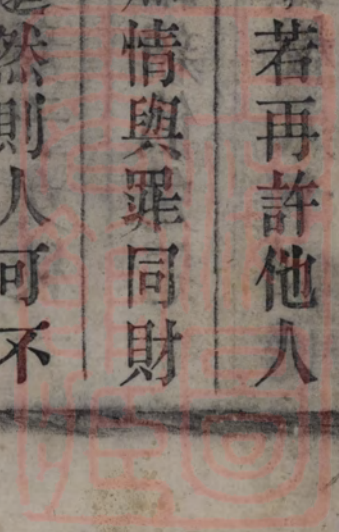 若再許他人
情與罪同財
然則人可不